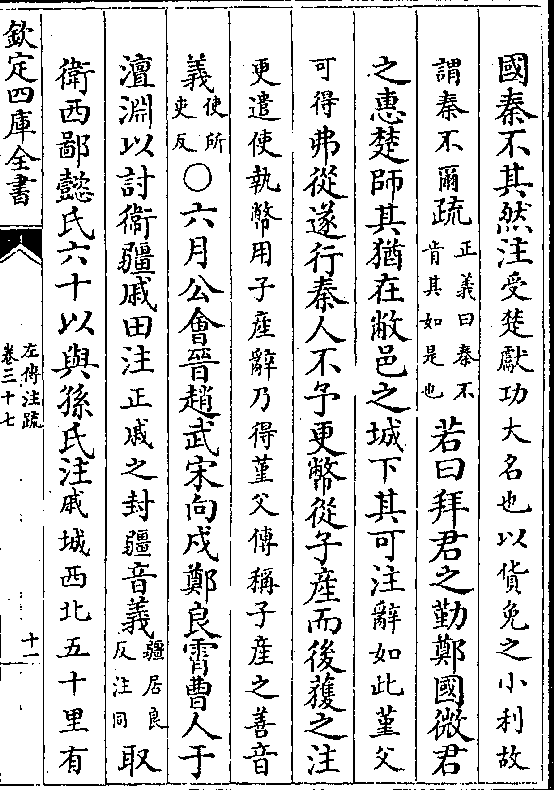 國秦不其然注受楚獻功大名也以貨免之小利故
謂秦不爾疏正義曰秦不肯其如是也若曰拜君之勤鄭國微君
之惠楚師其猶在敝邑之城下其可注辭如此堇父
可得弗從遂行秦人不予更幣從子產而後獲之注
更遣使執幣用子產辭乃得堇父傳稱子產之善音
義使所吏反〇六月公會晉趙武宋向戌鄭良霄曹人于
澶淵以討衛疆戚田注正戚之封疆音義疆居良反注同取
衛西鄙懿氏六十以與孫氏注戚城西北五十里有
欽定四庫全書
左傳注疏
卷三十七
十一